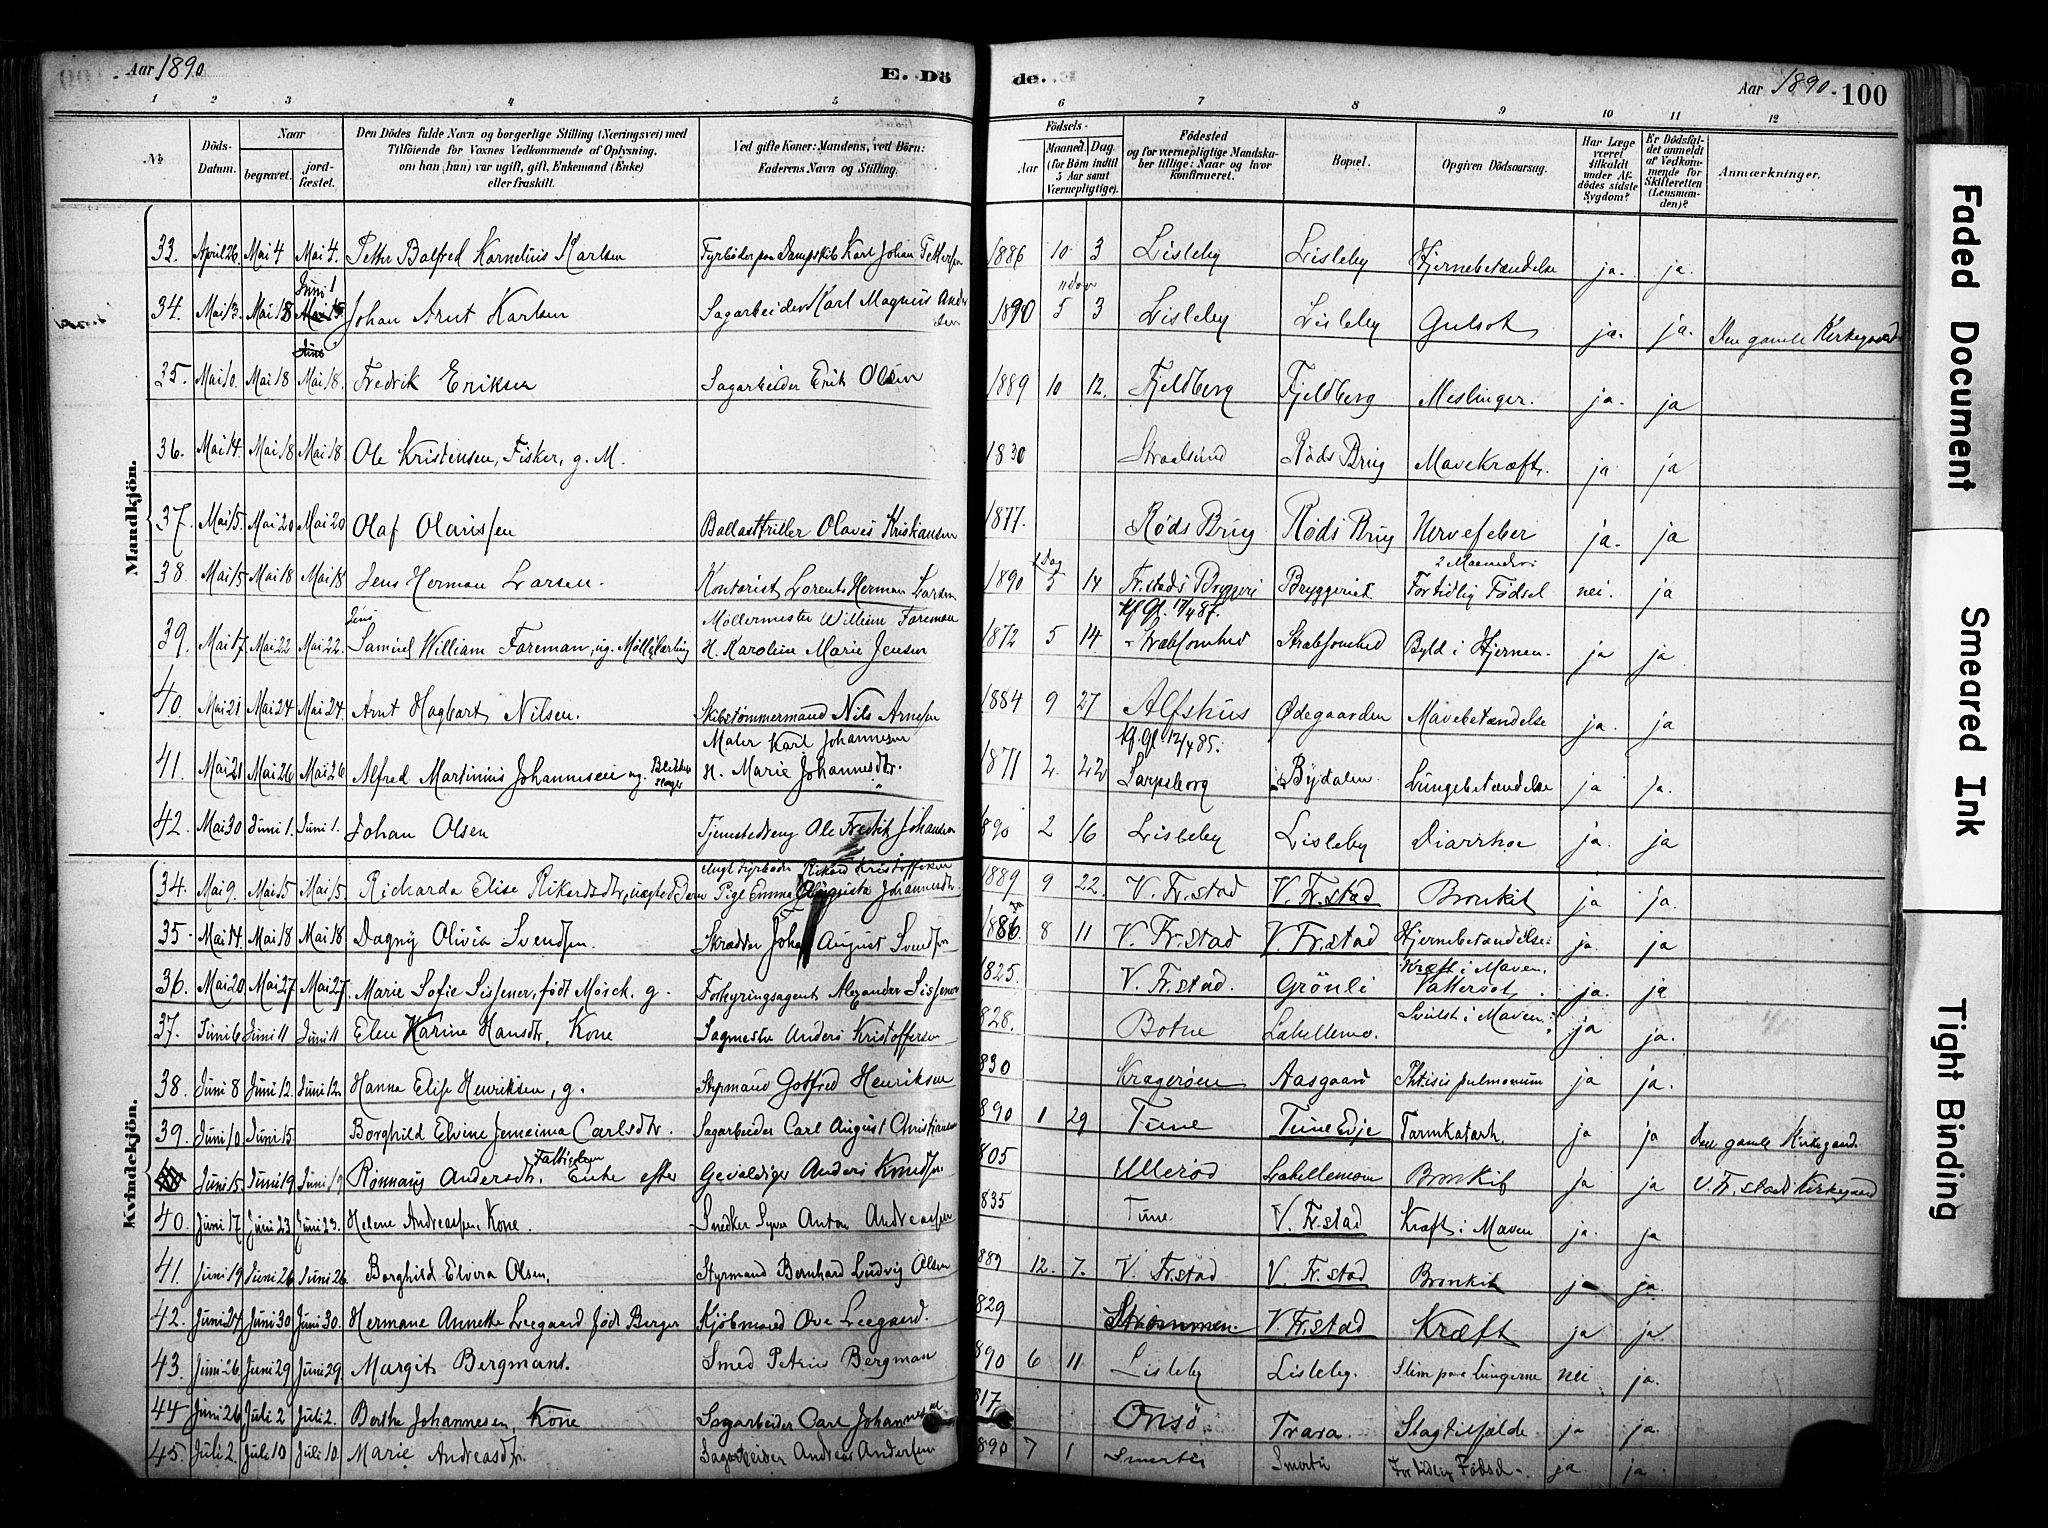 Aar 1890 E. Dö de. Aar 1890. 100
1 2 3 4 5 6 7 8 9 10 11 12
№ Döds-Datum. Naar begravet. jord-fæstet. Den Dödes fulde Navn og borgerlige Stilling (Næringsvei) med Tilföiende for Voxnes Vedkommende af Oplysning, om han (hun) var ugift, gift, Enkemand (Enke) eller fraskilt. Ved gifte Koner: Mandens, ved Börn: Faderens Navn og Stilling. Födsels- Aar Maaned. Dag. (for Börn indtil 5 Aar samt Værnepligtige). Födested og for værnepligtige Mandskaber tillige: Naar og hvor Konfirmeret. Bopæl. Opgiven Dödsaarsag. Har Læge været tilkaldt under Afdödes sidste Sygdom? Er Dödsfaldet anmeldt af Vedkommende for Skifteretten (Lensmanden)? Anmærkninger.
Mandkjön.
33. April 26 Mai 4 Mai 4. Petter Balfred Kornelius Karlsen Fyrböder paa Dampskib Karl Johan Pettersen 1886 10 3 Lisleby Lisleby Hjernebetændelse ja. ja.
34. Mai 13. Mai 18 Juni 1 Johan Arnt Karlsen Sagarbeider Karl Magnus Andersen 1890 5 3 Lisleby Lisleby Gulsot ja. ja. Den gamle Kirkegaard
35. Mai 10. Mai 18 Mai 18. Fredrik Eriksen Sagarbeider Erik Olsen 1889 10 12. Fjeldberg Fjeldberg Meslinger. ja. ja
36. Mai 14. Mai 18 Mai 18. Ole Kristensen, Fisker, g. M. 1830 Straalsund Röds Brug Mavekræft. ja ja
37. Mai 15. Mai 20 Mai 20 Olaf Olavissen Ballasttriller Olaves Kristiansen 1877. Röds Brug Röds Brug Nervefeber ja. ja
38. Mai 15 Mai 18 Mai 18 Jens Herman Larsen. Kontorist Lorents Herman Larsen 1890 5 14 Fr.stads Bryggeri Bryggeriet 2 Maaneder For tidlig Födsel nei. ja
39. Mai 17. Mai 22 Mai 22. Samuel William Foreman, ug. Möllelærling Möllermester William Foreman H. Karoline Marie Jensen 1872 5 14 Kf. Gl. 17/4 87. Stræbsomhed Stræbsomhed Byld i Hjernen. ja ja
40. Mai 21 Mai 24 Mai 24. Arnt Hagbart Nilsen. Skibstömmermand Nils Arnesen 1884 9 27 Alfshus Ödegaarden Mavebetændelse ja. ja
41. Mai 21 Mai 26 Mai 26 Alfred Martinius Johannesen ug. Blikkenslager Maler Karl Johannesen H. Marie Johannesdtr. 1871 2 22 Kf. Gl. 12/4 85. Sarpsborg Bydalen Lungebetændelse ja ja.
42. Mai 30 Juni 1. Juni 1. Johan Olsen Tjenestedreng Ole Fredrik Johansen 890 2 16 Lisleby Lisleby Diarrhoe ja. ja
Kvindekjön.
34. Mai 9. Mai 15 Mai 15. Rickarda Elise Rikardsdtr, uægte Barn Ungk. Fyrböder Rikard Kristoffersen Pige Emma Augusta Johannesdtr 1889 9 22. V. Fr.stad V. Fr.stad Bronkit ja ja.
35. Mai 14. Mai 18 Mai 18 Dagny Olivia Svendsen. Skrædder Johan August Svendsen 1886. 8 11 V. Fr.stad V. Fr.stad Hjernebetændelse. ja. ja
36. Mai 20 Mai 27 Mai 27. Marie Sofie Sissener, född Mörch. g. Forhyringsagent Alexander Sissener 1825. V. Fr.stad. Grönli Kræft i Maven. Vattersot ja. ja
37. Juni 6 Juni 11 Juni 11 Elen Karine Hansdtr, Kone Sagmester Anders Kristoffersen 828. Botne Labellemo. Svulst i Maven ja ja.
38. Juni 8 Juni 12. Juni 12. Hanna Elise Henriksen, g. Styrmand Gotfred Henriksen 830 Kragerøen Aasgaard Phtisis pulmonum ja ja.
39. Juni 10. Juni 15 Borghild Elvine Jemeima Carlsdtr. Sagarbeider Carl August Christiansen 890 1 29 Tune Tune Edje Tarmkatarh. ja ja Den gamle Kirkegaard.
Juni 15. Juni 19 Juni 19 Rönnaug Andersdtr, Fattiglem Enke efter Gevaldiger Anders Knudsen 805 Ulleröd Labellemoen Bronkit ja ja V. Fr.stads Kirkegaard
40. Juni 17 Juni 23 Juni 23. Helene Andreassen, Kone. Snedker Syver Anton Andreassen 835 Tune V. Fr.stad Kræft i Maven ja. ja
41. Juni 19 Juni 26 Juni 26. Borghild Elvira Olsen. Styrmand Bernhard Ludvig Olsen 889 12. 7. V. Fr.stad V. Fr.stad Bronkit ja ja.
42. Juni 24 Juni 30 Juni 30. Hermane Annette Leegaard födt Berger Kjöbmand Ove Leegaard. 829 Strömmen. V. Fr.stad Kræft ja ja
43. Juni 26. Juni 29 Juni 29. Margit Bergmans. Smed Petrus Bergman 890 6 11 Lisleby Lisleby. Slim paa Lungerne nei ja.
44 Juni 26 Juli 2 Juli 2. Berthe Johannesen, Kone Sagarbeider Carl Johannesen 817 Onsö Trara. Slagtilfælde ja ja.
45. Juli 2. Juli 10 Juli 10. Marie Andreasdtr. Sagarbeider Andreas Andersen 890 7 1 Smertu Smertu For tidlig Födsel. ja ja.
Faded Document
Smeared Ink
Tight Binding